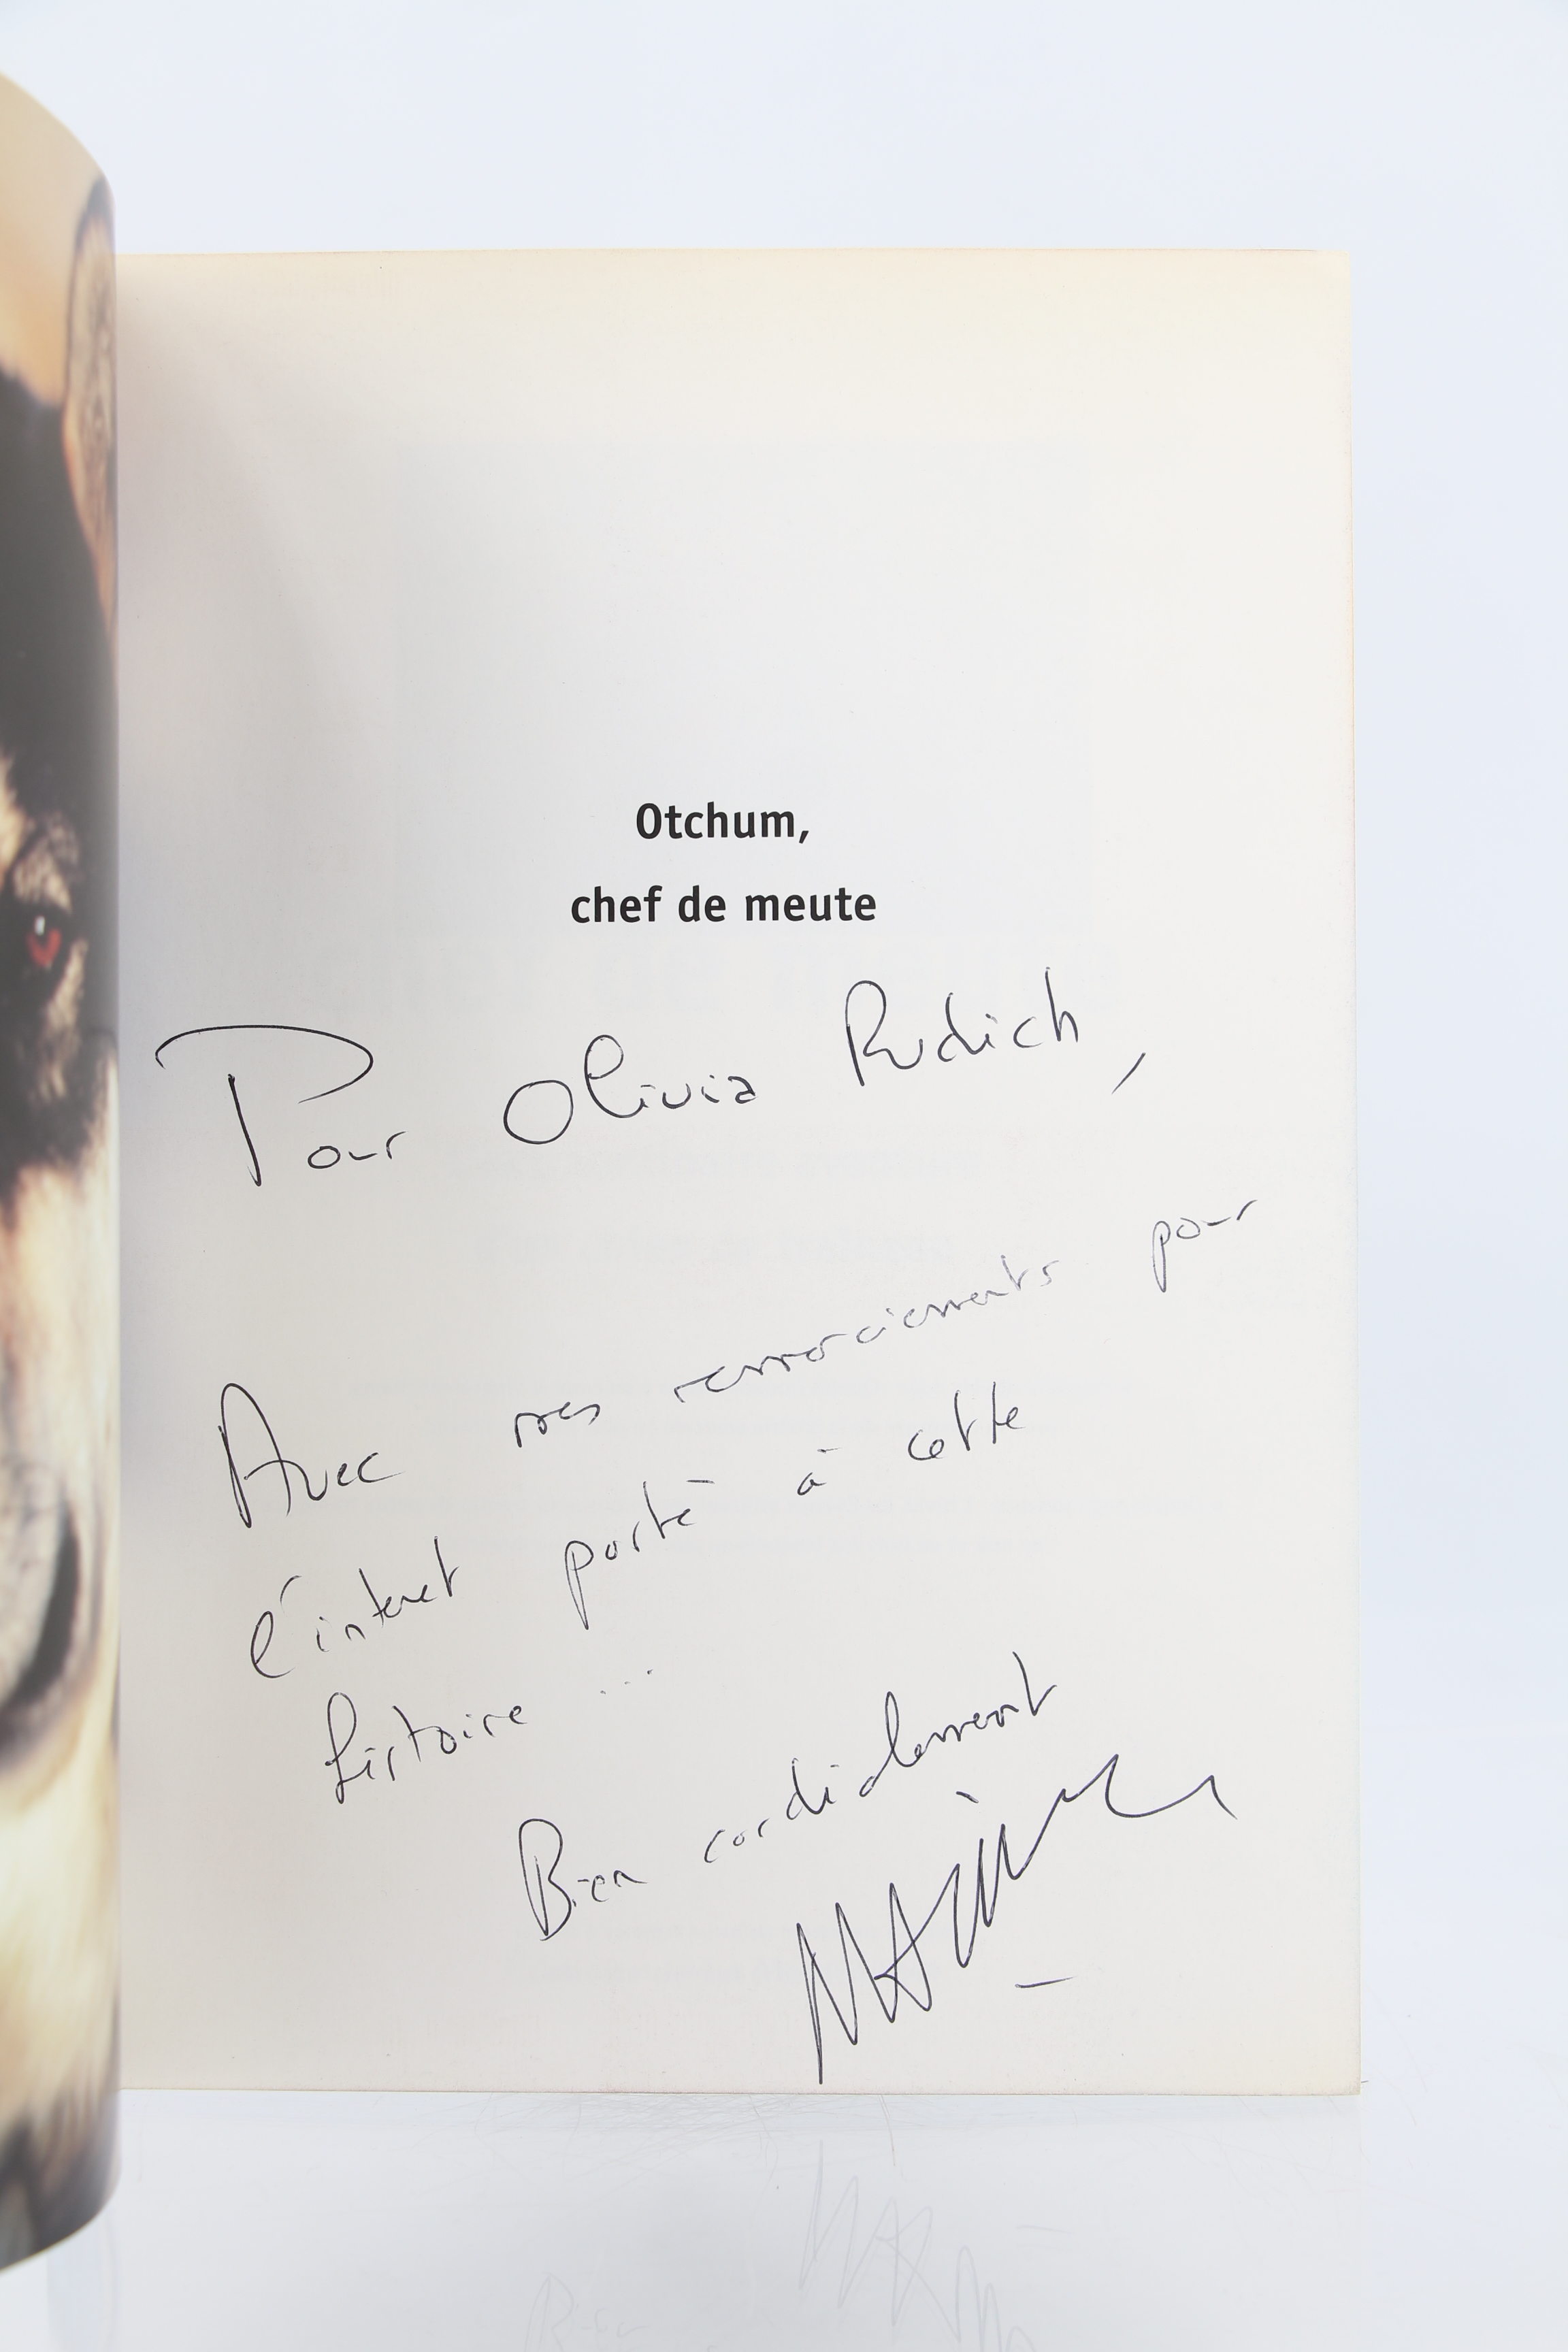 Otchum,
chef de meute
Pour Olivia Rudich,
Avec mes remerciements pour
l'interet porté à cette
histoire ...
Bien cordialement